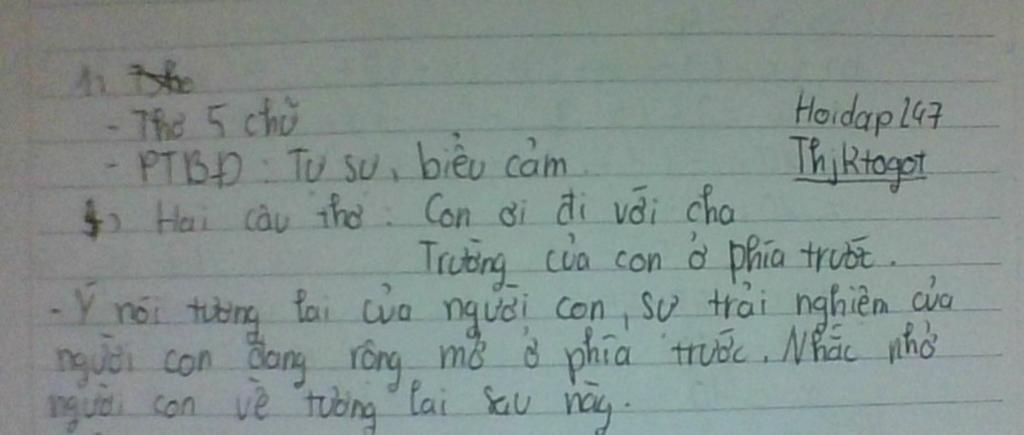 1)
- Thơ 5 chữ
Hoidap247
- PTBĐ: Tự sự, biểu cảm
Thjktogot
4) Hai câu thơ: Con ơi đi với cha
Trường của con ở phía trước.
- Ý nói tương lai của người con, sự trải nghiệm của
người con đang rộng mở ở phía trước. Nhắc nhở
người con về tương lai sau này.